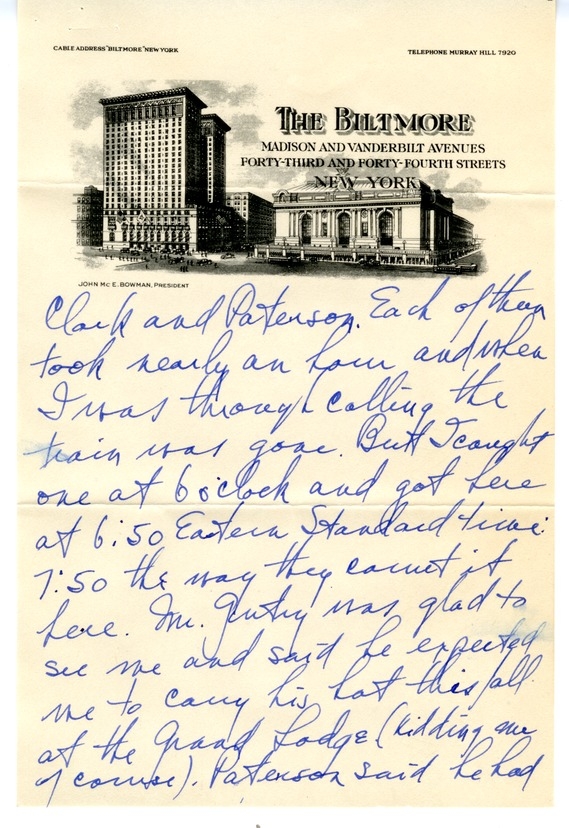 CABLE ADDRESS "BILTMORE" NEW YORK
TELEPHONE MURRAY HILL 7920
THE BILTMORE
MADISON AND VANDERBILT AVENUES
FORTY-THIRD AND FORTY-FOURTH STREETS
NEW YORK
JOHN MC E. BOWMAN, PRESIDENT
Clark and Paterson. Each of them
took nearly an hour and when
I was through calling the
train was gone. But I caught
one at 6 o'clock and got here
at 6:50 Eastern Standard time:
7:50 the way they count it
here. Mr. Gentry was glad to
see me and said he expected
me to carry his hat this fall
at the Grand Lodge (kidding me
of course). Paterson said he had